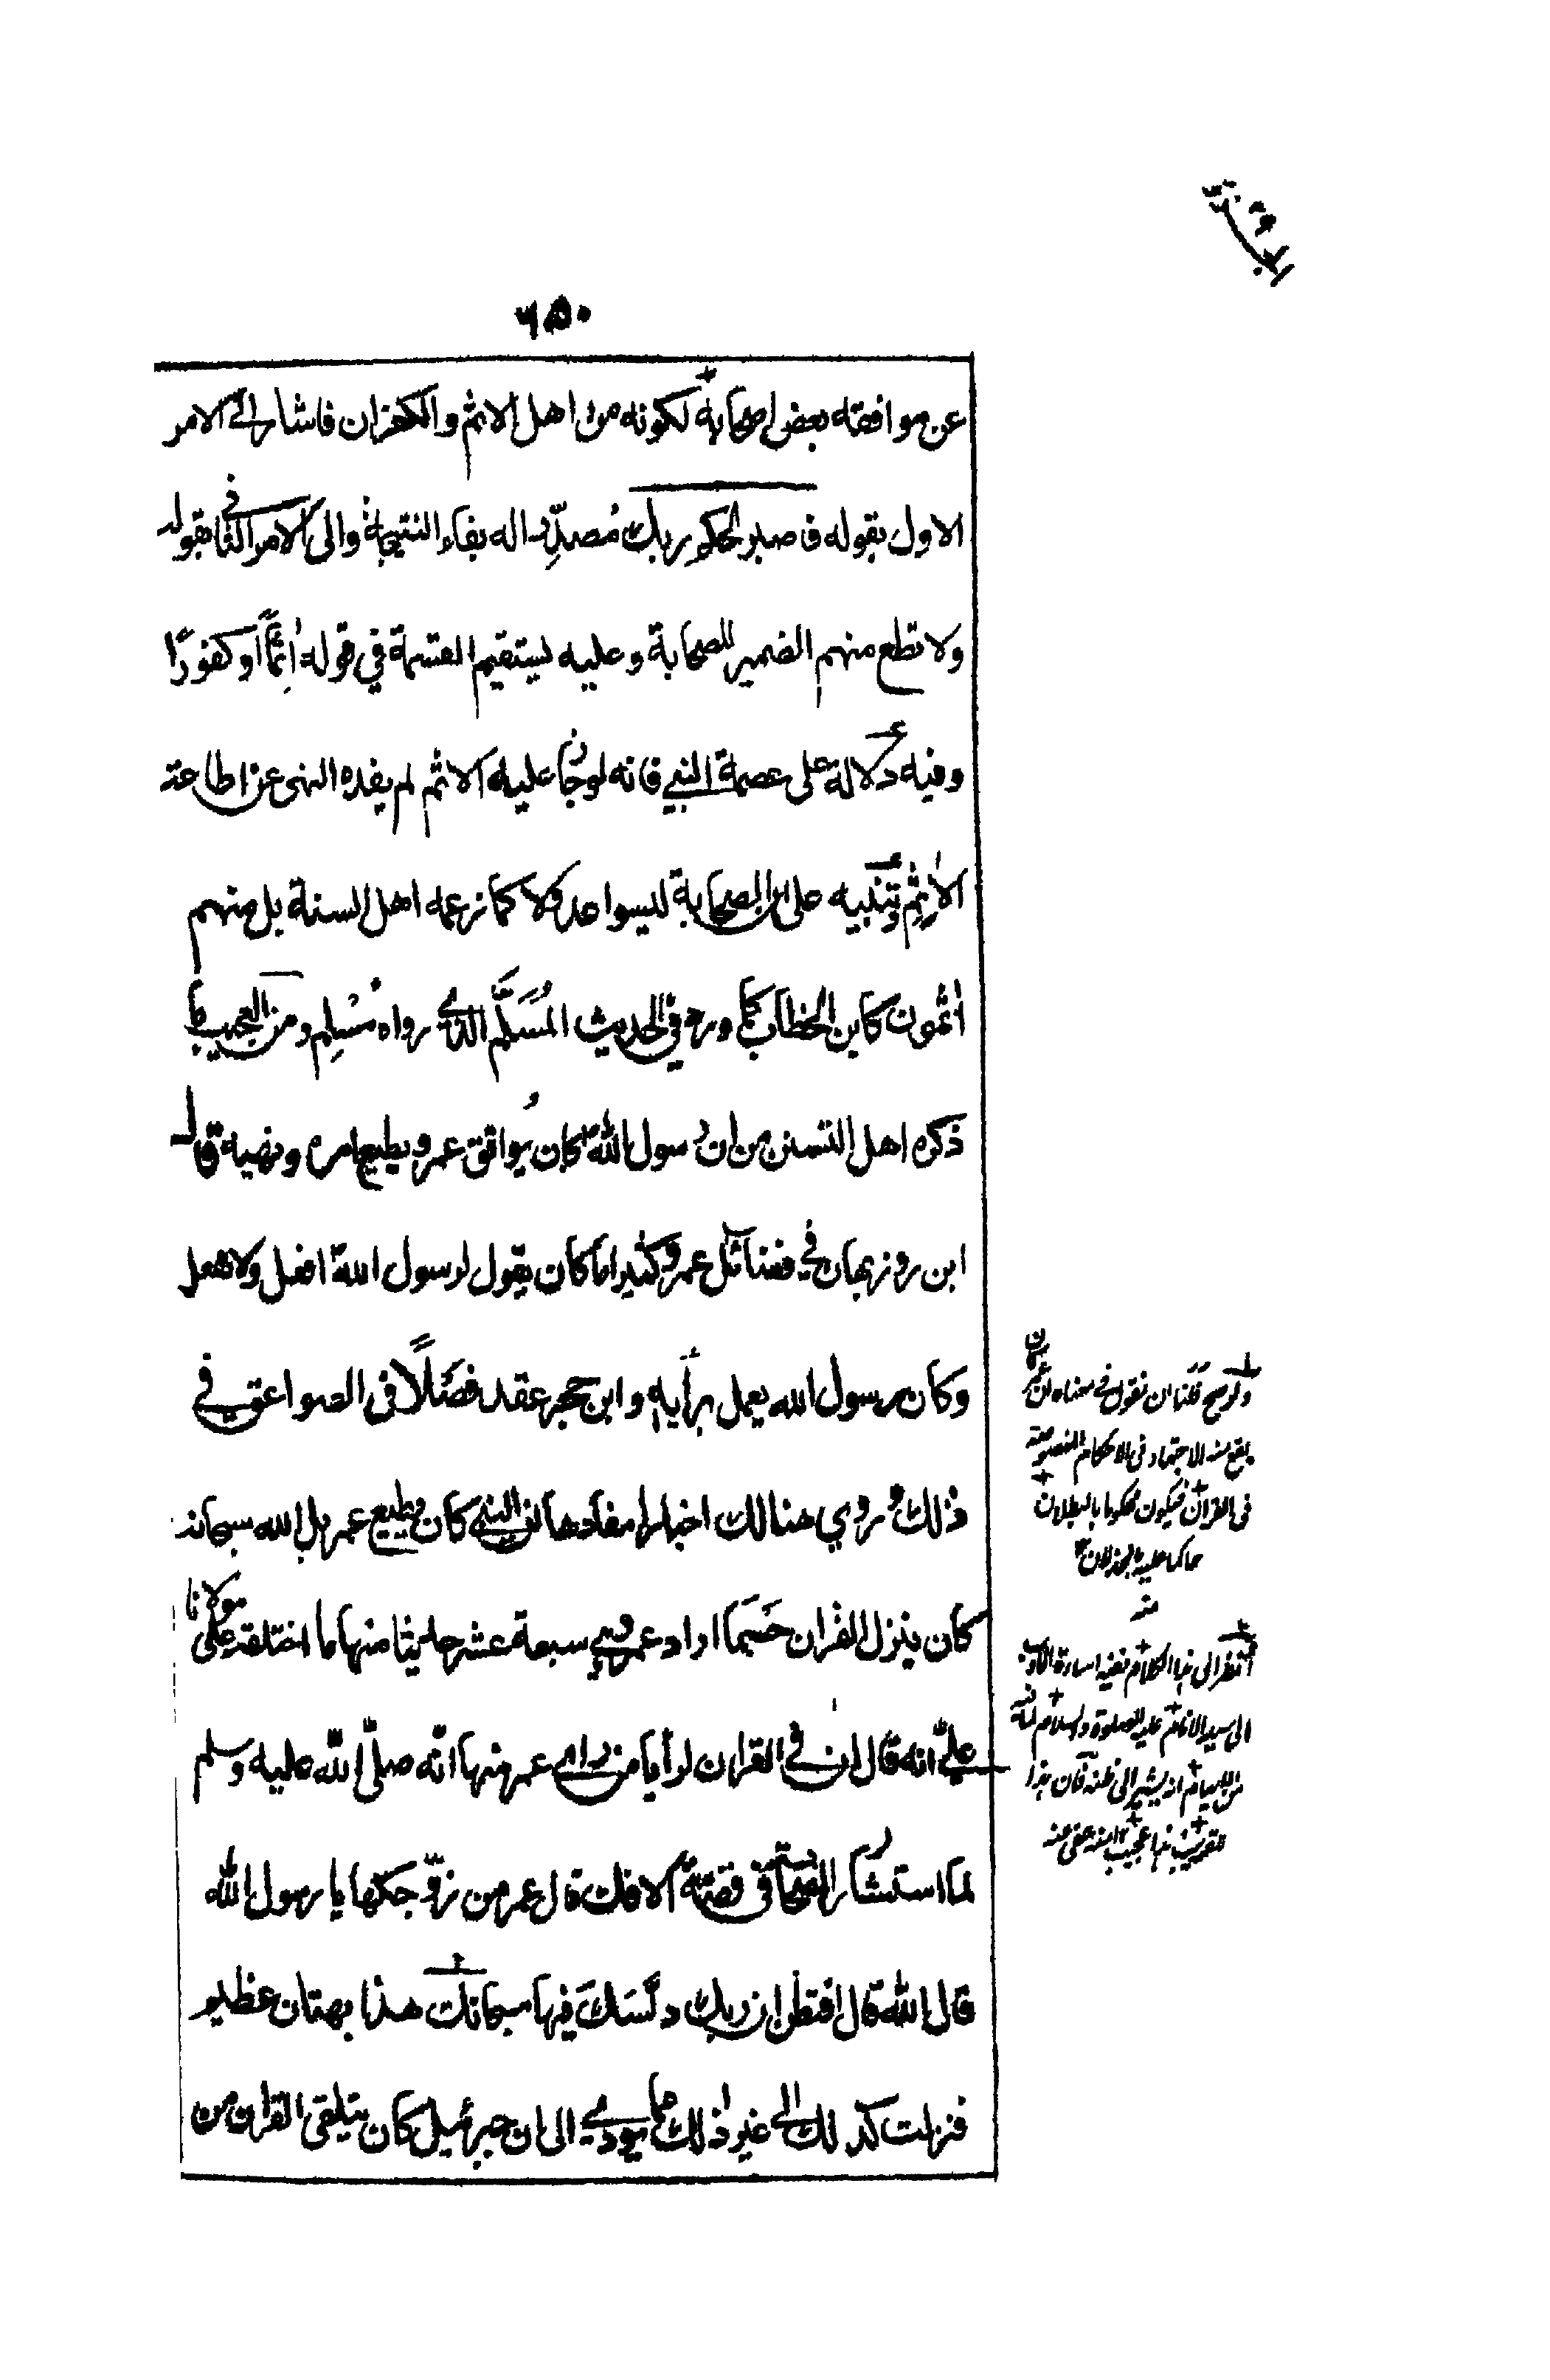 ٦٥٠
عن موافقته بعض اصحابه لكونه من اهل الاثم والكفران فاشار الى الامر
الاول بقوله فاصبر لحكم ربك مصدرا له بفاء النتيجة والى الامر الثاني بقوله
ولا تطع منهم الضمير للصحابة وعليه يستقيم القسمة في قوله اٰثمًا او كفورًا
وفيه دلالة على عصمة النبي فانه لو جاز عليه الاثم لم يفده النهى عن اطاعة
الاٰثم وتنبيه على ان الصحابة ليسوا عدولا كما زعمه اهل السنة بل منهم
اٰثمون كابن الخطاب كما ورد في الحديث المُسَلَّم الذي رواه مُسْلِم ومن العجيب ما
ذكره اهل التسنن من ان رسول الله كان يُوافق عمر ويطيع امره ونهيه قال
ابن روزبهان في فضائل عمر وكثيرا ما كان يقول لرسول الله افعل ولا تفعل
وكان رسول الله يعمل برأيه وابن حجر عقد فصلًا في الصواعق في
ذلك وروي هنالك اخبارا مفادها ان النبي كان يطيع عمر بل الله سبحانه
كان ينزل القران حَسَبما اراد عمر وهي سبعة عشر حديثا منها ما اختلقه على مولانا
علي انه قال ان في القران لرأيا من راي عمر منها انّه صلّى الله عليه وسلم
لما استشار الصحابة في قصّة الافك قال عمر من زوّجكها يا رسول الله
قال الله قال افتظن ان ربك دلّسَكَ فيها سبحانك هذا بهتان عظيم
فنزلت كذلك الى غير ذلك مما يودي الى ان جبرئيل كان يتلقى القران من
ولو صح قلنا ان نقول في معناه ان عمر كان
يقع منه الاجتهاد في الاحكام المنصوصة
في القران فيكون محكوما بالبطلان
حاكما عليه بالخذلان
منه
انظر الى هذا الكلام ففيه اساءة الادب
الى سيد الانام عليه الصلوة والسلام